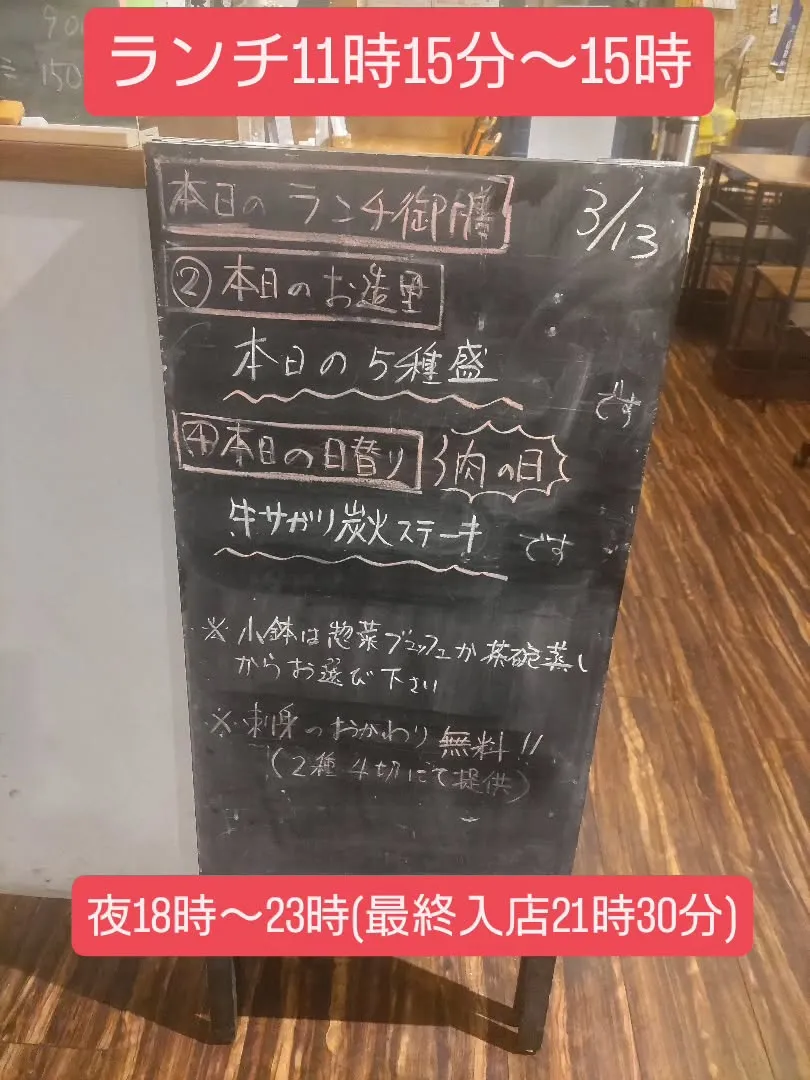 ランチ11時15分〜15時
90
150
本日の ランチ御膳
3/13
②本日のお造里
本日の5種盛
です
④本日の日替り
肉の日
牛サガリ炭火ステーキ です
※小鉢は惣菜ブュッフェか茶碗蒸し
からお選び下さい
※刺身のおかわり無料!!
(2種4切にて提供)
夜18時〜23時(最終入店21時30分)